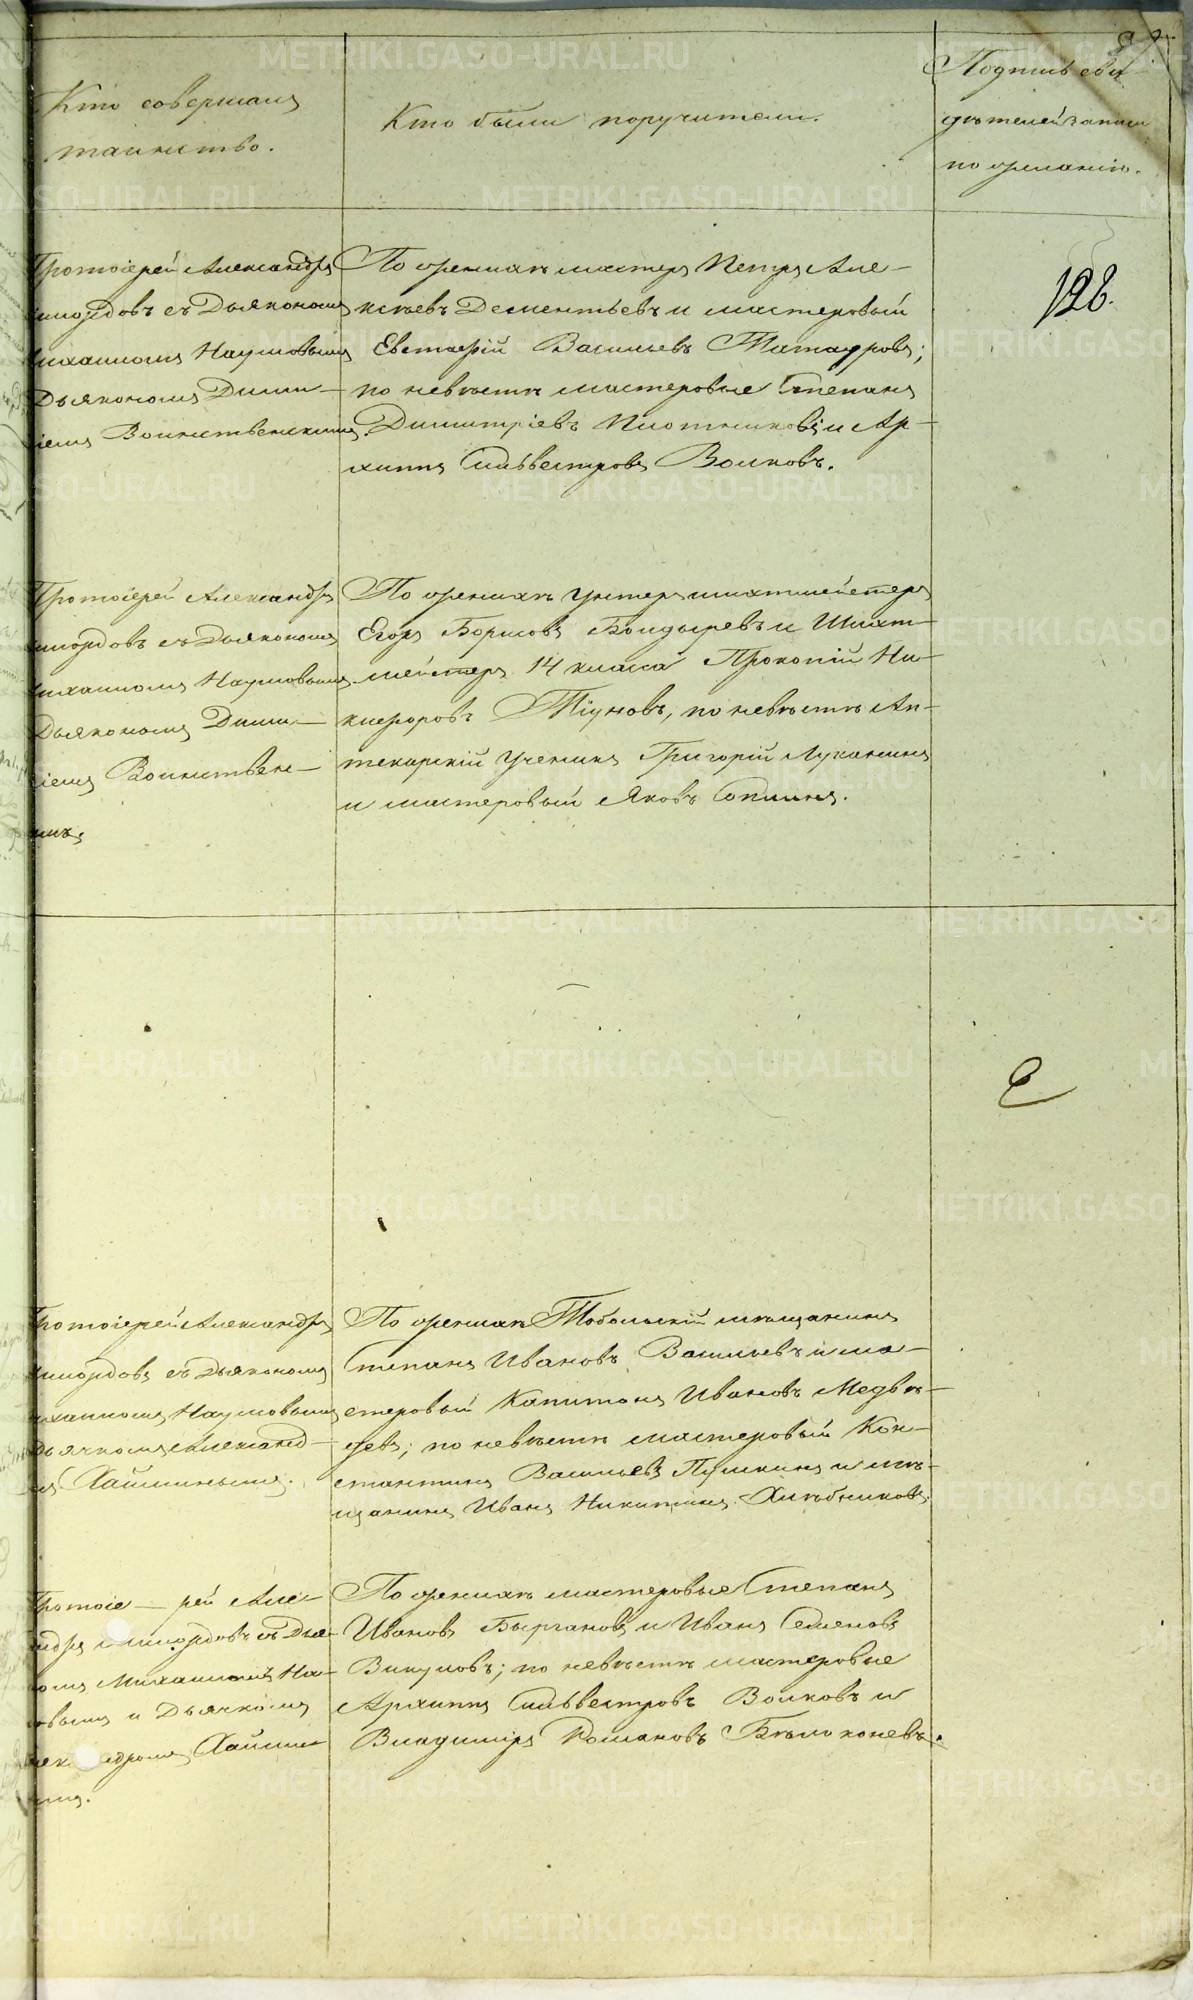 Кто совершалъ
таинство.
Кто были поручители.
Подпись сви
дѣтелей записи
по желанію.
128.
Протоіерей Александръ
съ Дьякономъ
Михаиломъ Наумовымъ
Дьякономъ Дими-
ріемъ Воинственскимъ
По женихѣ мастеръ Петръ Але-
ксѣевъ Дементьевъ и мастеровый
Евстафій Васильевъ
по невѣстѣ мастеровые Степанъ
Димитріевъ Плотниковъ и Ар-
хиппъ Сильвестровъ Волковъ.
Протоіерей Александръ
съ Дьякономъ
Михаиломъ Наумовымъ
Дьякономъ Дими-
ріемъ Воинствен-
кимъ.
По женихѣ Унтеръ шихтмейстеръ
Егоръ Борисовъ Болдыревъ и Шихт-
мейстеръ 14 класса Прокопій Ни-
кифоровъ Тіуновъ, по невѣстѣ Ап-
текарскій Ученикъ Григорій Луканинъ
и мастеровый Яковъ
Протоіерей Александръ
съ Дьякономъ
Михаиломъ Наумовымъ
Дьячкомъ Александ-
По женихѣ Тобольскій мѣщанинъ
Степанъ Ивановъ Васильевъ и ма-
стеровый Капитонъ Ивановъ Медвѣ-
девъ; по невѣстѣ мастеровый Кон-
стантинъ Васильевъ Пушкинъ и мѣ-
щанинъ Иванъ Никитинъ Хлѣбниковъ.
Протоіе-рей Але-
съ Дья-
Михаиломъ На-
овымъ и Дьячкомъ
По женихѣ мастеровые Степанъ
Ивановъ и Иванъ Семеновъ
Викуловъ; по невѣстѣ мастеровые
Архиппъ Сильвестровъ Волковъ и
Владиміръ Романовъ Бѣлоконевъ.
METRIKI.GASO-URAL.RU